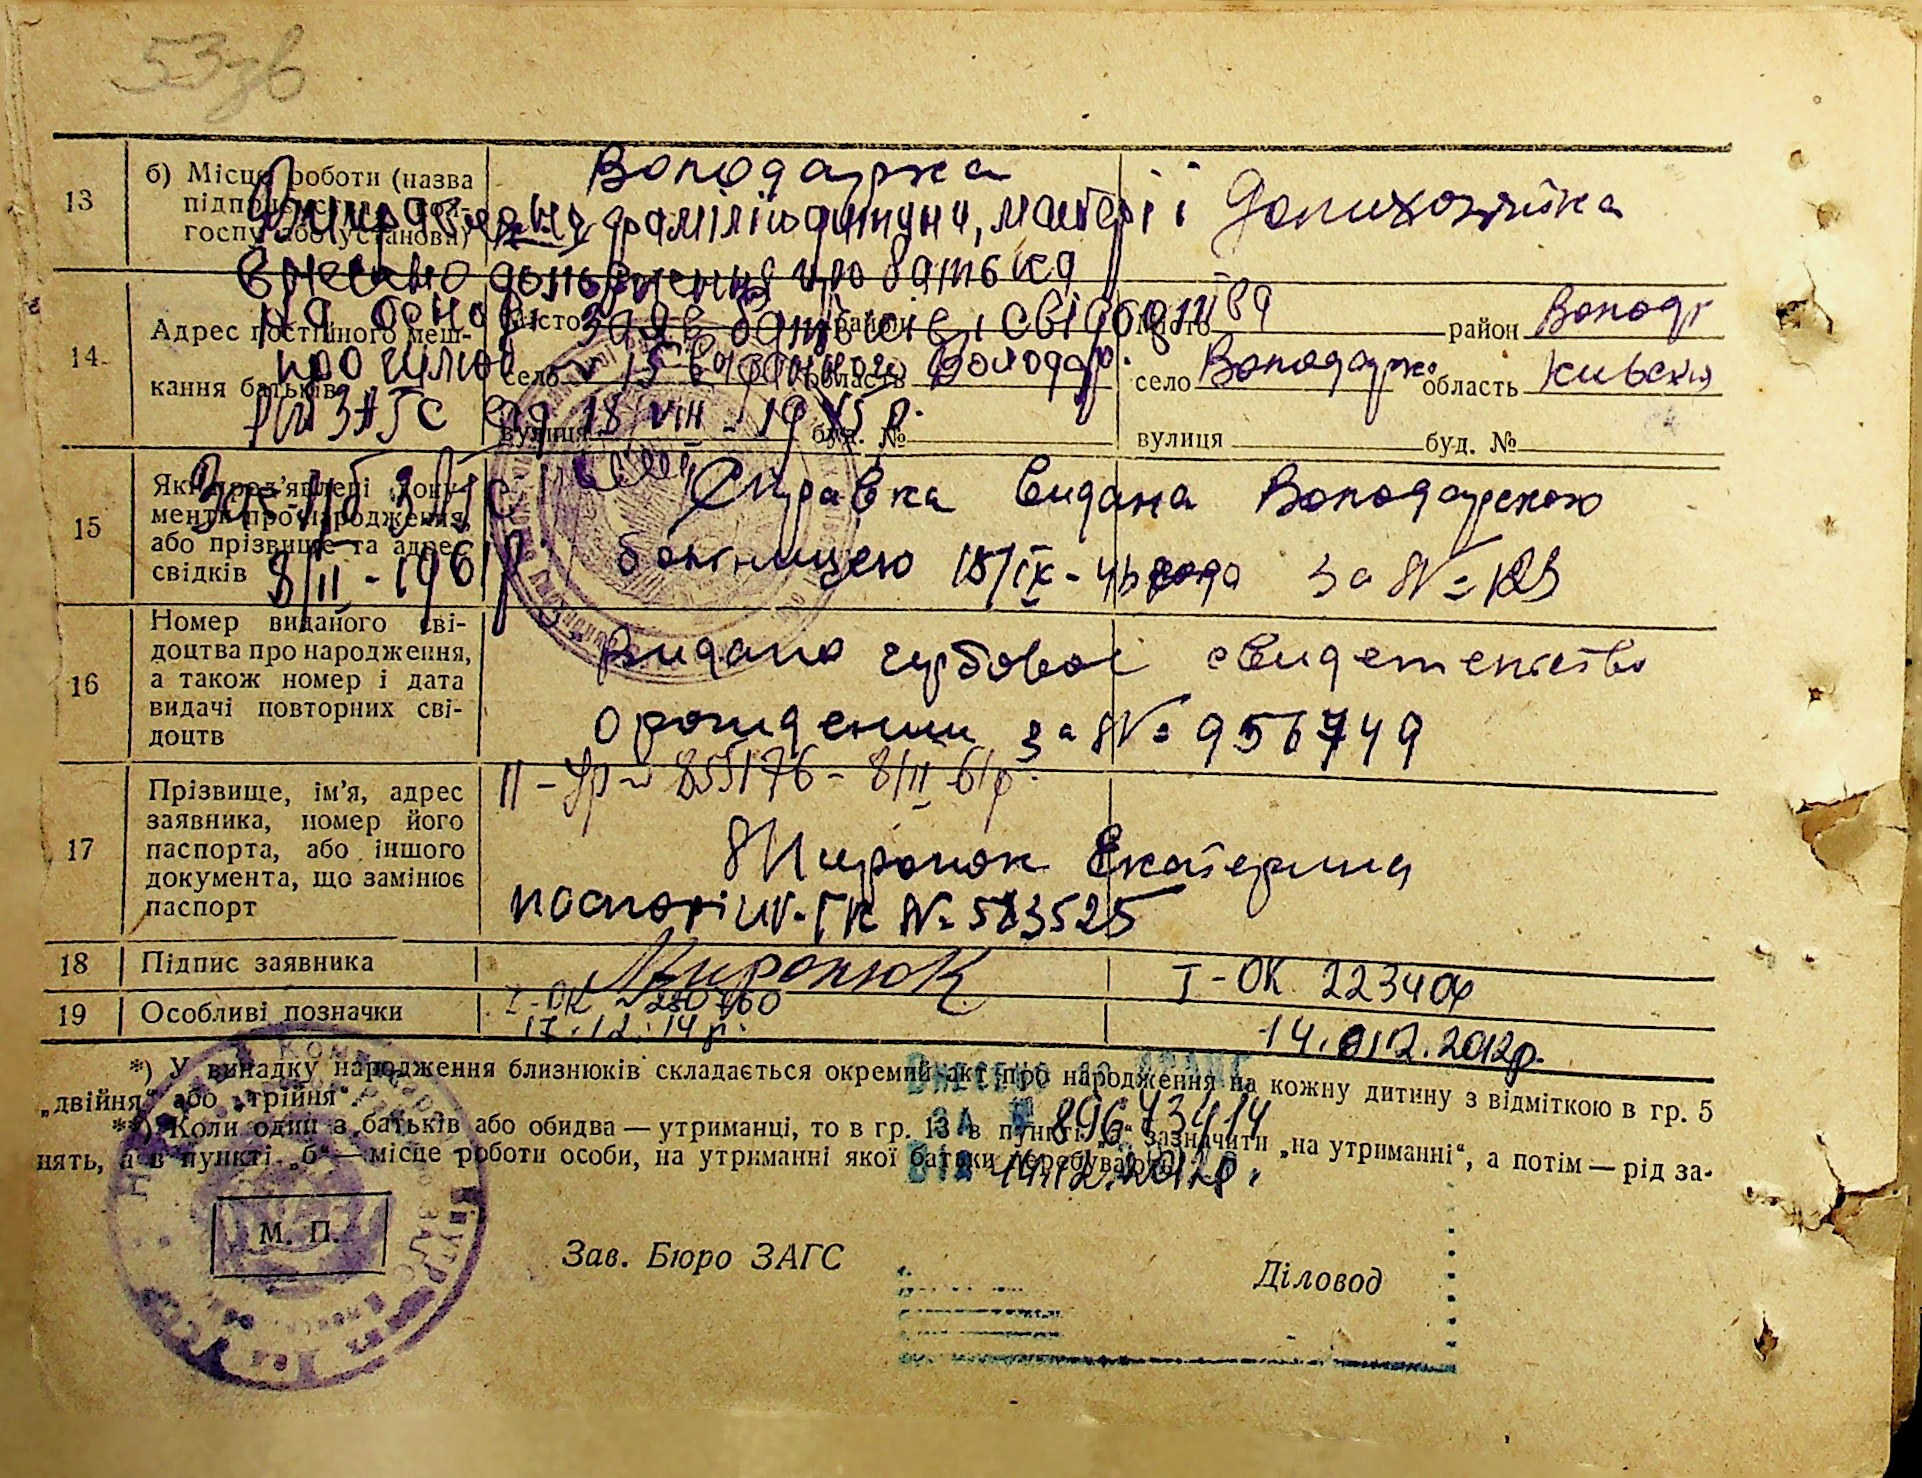 53зв
13
б) Місце роботи (назва
підприємства, кол-
госпу або установи)
Володарка
Домихозяйка
Виправлену фамілію дитини, матері і
внесено доповнення про батька
на основі заяв батьків і свідоцтва
про шлюб № 15 Володар.
РайЗАГС від 18/VIII - 1945 р.
8/II - 1961 р.
14
Адрес постійного меш-
кання батьків
місто район
село область
вулиця буд. №
місто район Володар
село Володарка область Київська
вулиця буд. №
15
Які пред'явлені доку-
менти про народження,
або прізвище та адрес
свідків
Справка видана Володарскою
больницею 18/IX - 43 года за № 123
16
Номер виданого сві-
доцтва про народження,
а також номер і дата
видачі повторних сві-
доцтв
Видано гербовоє свидетельство
о рождении за № 956749
II - Ур № 855176 - 8/II 61р.
17
Прізвище, ім'я, адрес
заявника, номер його
паспорта, або іншого
документа, що замінює
паспорт
Миронюк Екатерина
паспорт № 583525
18
Підпис заявника
Миронюк
I - ОК 223404
19
Особливі позначки
I - ОК № 280760
17.12.14р.
14.12.2012р.
*) У випадку народження близнюків складається окремий акт про народження на кожну дитину з відміткою в гр. 5
„двійня“ або „трійня“.
**) Коли один з батьків або обидва — утриманці, то в гр. 13 в пункті „а“ зазначити „на утриманні“, а потім — рід за-
нять, а в пункті „б“ — місце роботи особи, на утриманні якої батьки перебувають.
Внесено до
ЗА № 89673414
Від 14.12.2012р.
М. П.
Зав. Бюро ЗАГС
Діловод